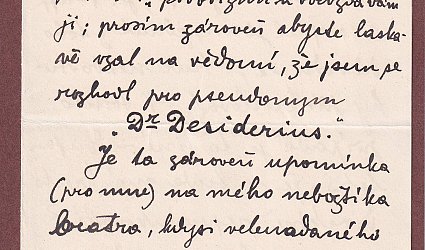 ji; prosím zároveň abyste laska-
vě vzal na vědomí, že jsem se
rozhodl pro pseudonym
„Dr Desiderius.“
Je to zároveň upomínka
(pro mne) na mého nebožtíka
bratra, kdysi velenadaného